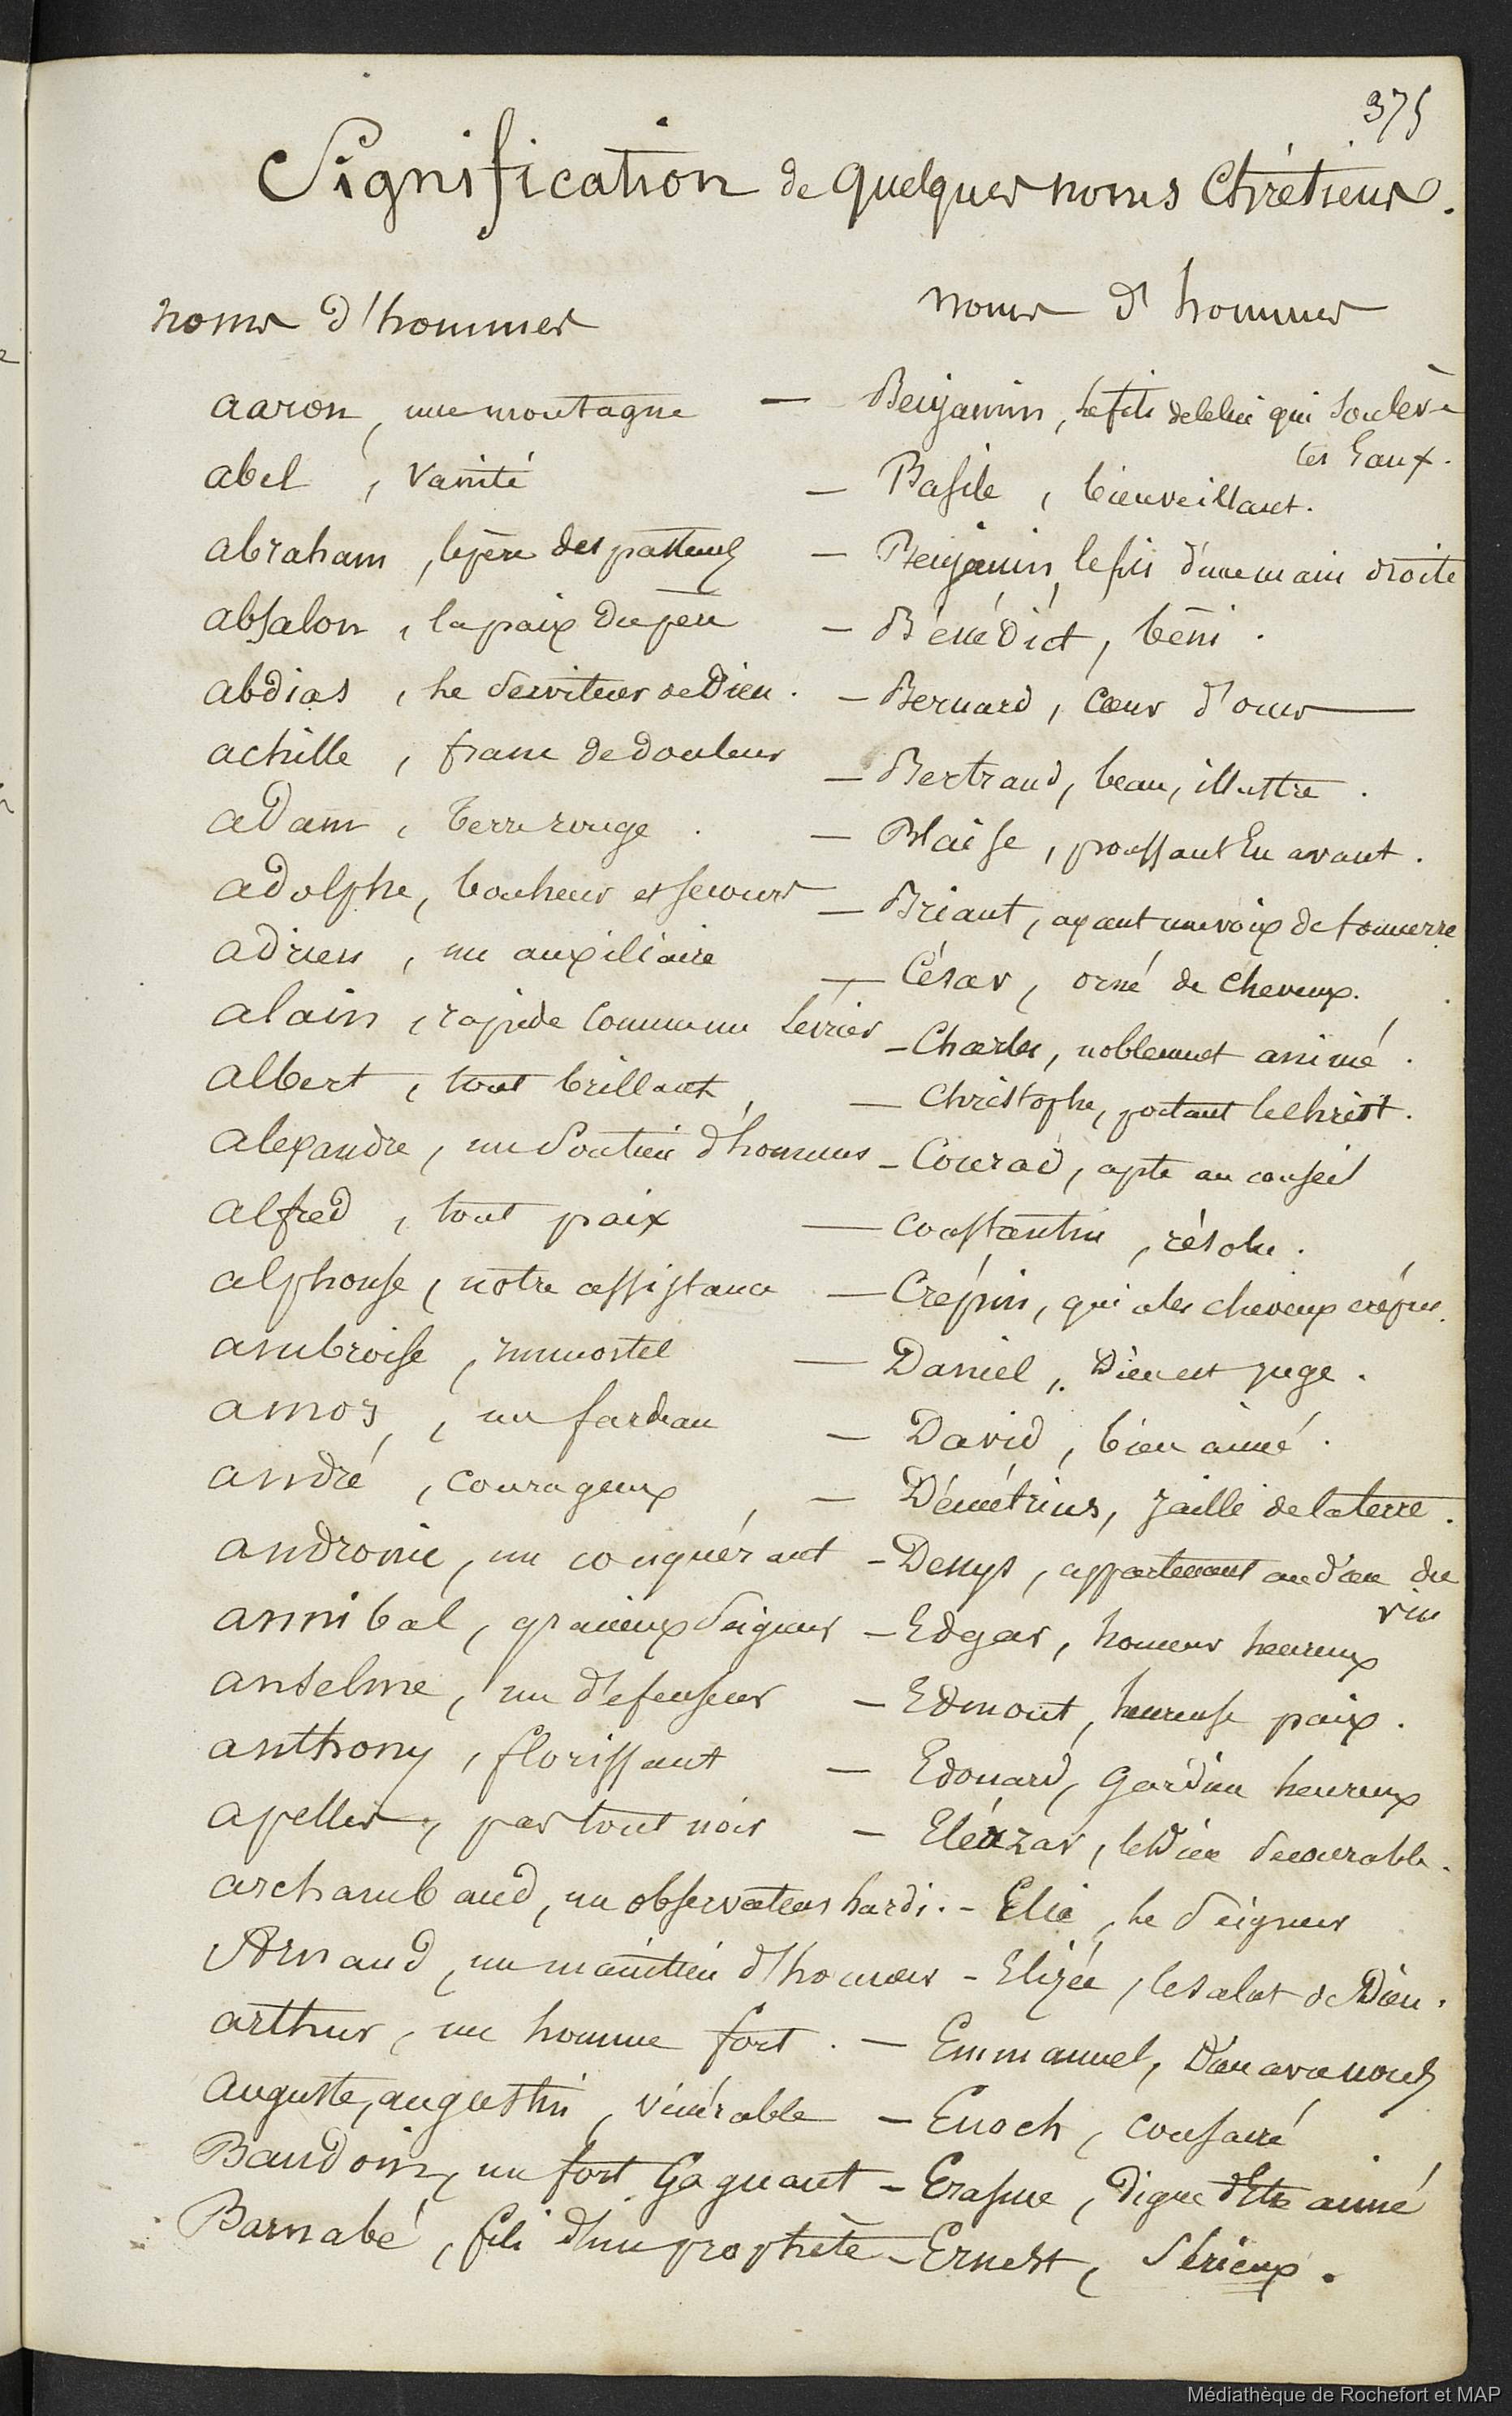 375
Signification de quelques noms Chrétiens.
noms d'hommes
aaron, une montagne
abel, vanité
abraham, le père des
absalon, la paix du père
abdias, le serviteur de Dieu.
achille, franc de douleur
adam, terre rouge.
adolphe, bonheur et secours
adrien, un auxiliaire
alain, rapide comme un levrier
albert, tout brillant
alexandre, un soutien d'hommes
alfred, tout paix
alphonse, notre assistance
ambroise, immortel
amos, un fardeau
andré, courageux
andronic, un conquérant
annibal, gracieux seigneur
anselme, un défenseur
anthony, florissant
apelles, pas tout noir
archambaud, un observateur hardi.
Arnaud, un maintien d'honneur
arthur, un homme fort.
auguste, augustin, vénérable
Baudoin, un fort gagnant
Barnabé, fils d'un prophète
noms d'hommes
— Benjamin, le fils de celui qui soulève
les Eaux.
— Basile, bienveillant.
— Benjamin, le fils d'une main droite
— Bénédict, béni.
— Bernard, cœur d'ours
— Bertrand, beau, illustre.
— Blaise, poussant En avant.
— Briant, ayant une voix de tonnerre
— César, orné de cheveux.
— Charles, noblement animé.
— Christophe, portant le christ.
— Conrad, apte au conseil
— Constantin, résolu.
— Crépin, qui a les cheveux crépus.
— Daniel, Dieu est juge.
— David, bien aimé.
— Démétrius, jailli de la terre.
— Denys, appartenant au dieu du
vin
— Edgar, honneur heureux
— Edmont, heureuse paix.
— Edouard, gardien heureux
— Eléazar, le Dieu secourable.
— Elie, le Seigneur
— Elizée, le salut de Dieu.
— Emmanuel, Dieu avec nous
— Enoch, consacré
— Erasme, digne d'Etre aimé
— Ernest, Sérieux.
Médiathèque de Rochefort et MAP